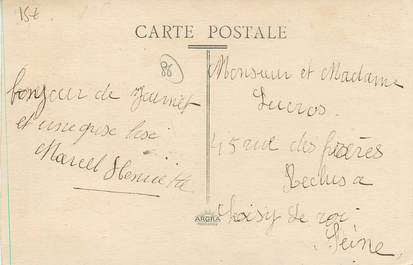 15€
CARTE POSTALE
86
bonjour de Jaunet
et une grose bise
Marcel Henriette
Monsieur et Madame
Lucros
45 rue des frères
Reclus a
Choisy Le roi
Seine
ARGRA